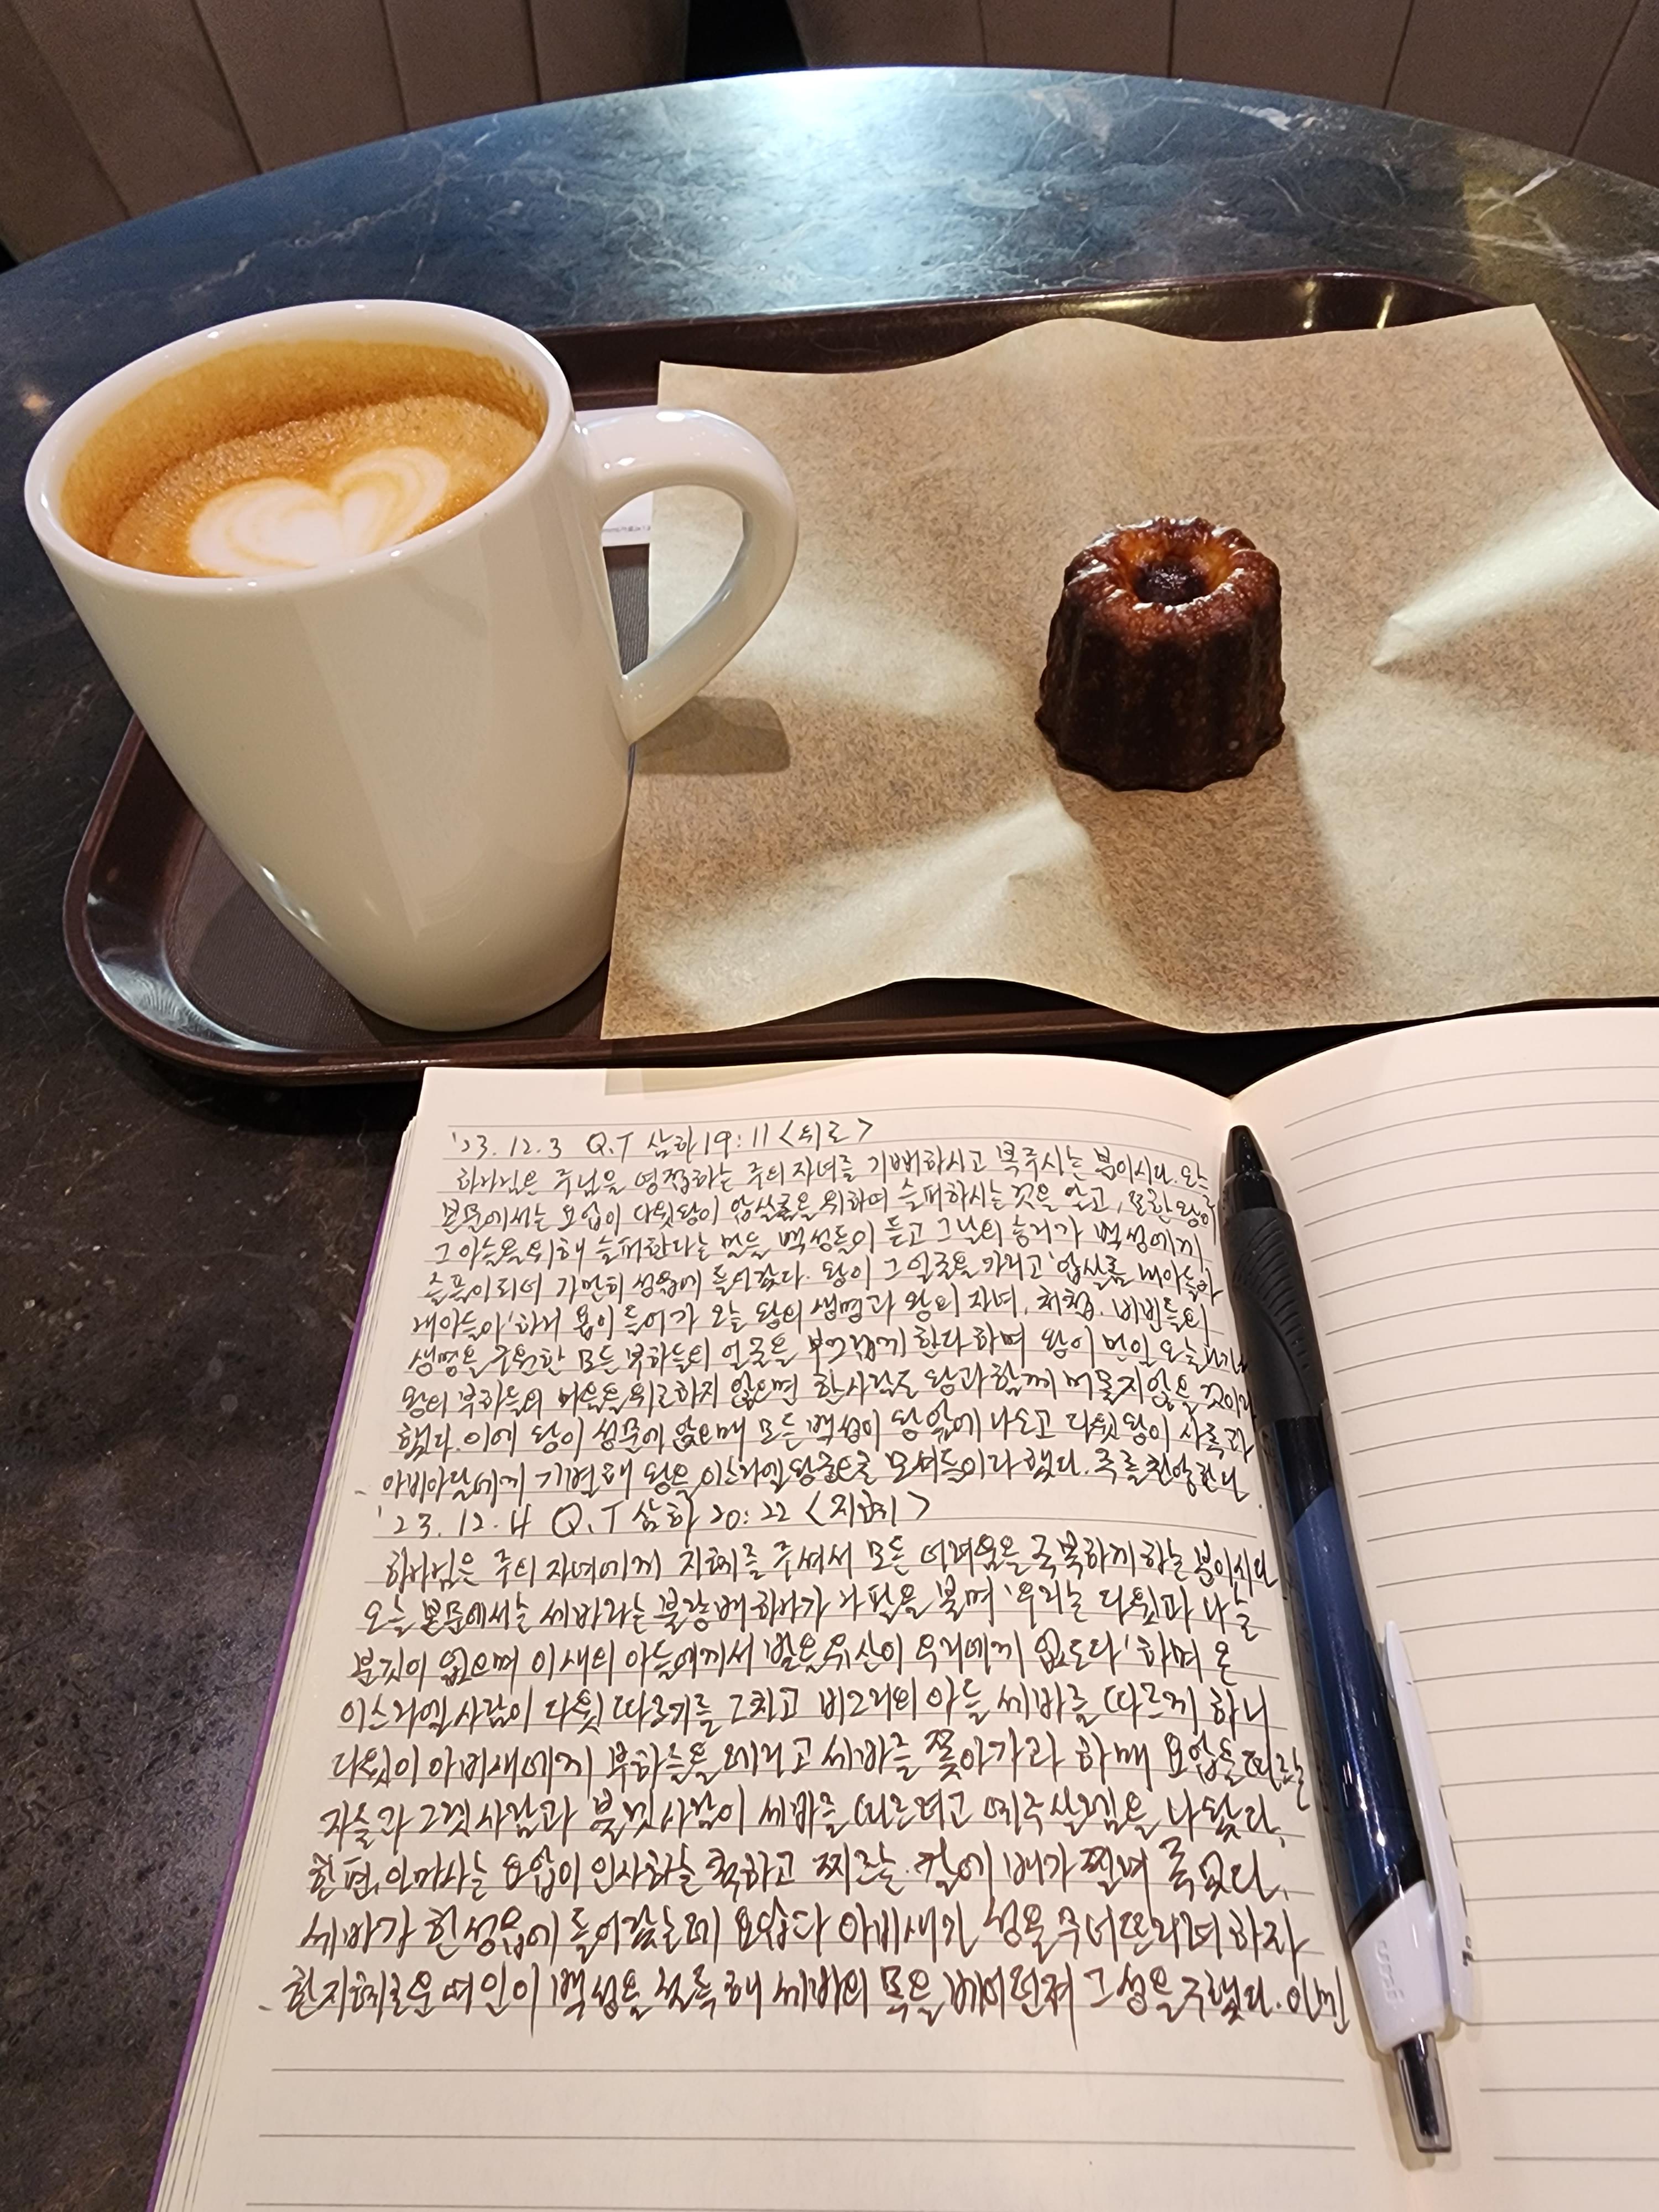 '23.12.3 Q.T 삼하19:11 <위로>
하나님은 주님을 영접하는 주의 자녀를 기뻐하시고 복주시는 분이시다. 오늘
본문에서는 요압이 다윗왕이 압살롬을 위하여 슬퍼하시는 것을 알고, 또한 왕이
그 아들을 위해 슬퍼한다는 말을 백성들이 듣고 그날의 승리가 백성에게
슬픔이 되어 가만히 성읍에 들어갔다. 왕이 그 얼굴을 가리고 '압살롬 내아들아
내아들아' 하니 요압이 들어가 오늘 왕의 생명과 왕의 자녀, 처첩, 비빈들의
생명을 구원한 모든 부하들의 얼굴을 부끄럽게 한다 하며 왕이 만일 오늘 나가서
왕의 부하들의 마음을 위로하지 않으면 한사람도 왕과 함께 머물지 않을 것이라
했다. 이에 왕이 성문에 앉으매 모든 백성이 왕 앞에 나오고 다윗왕이 사독과
아비아달에게 기별해 왕을 이스라엘 왕궁으로 모셔들이라 했다. 주를 찬양한다.
'23.12.4 Q.T 삼하 20:22 <지혜>
하나님은 주의 자녀에게 지혜를 주셔서 모든 어려움을 극복하게 하는 분이시다
오늘 본문에서는 세바라는 불량배 하나가 나팔을 불며 '우리는 다윗과 나눌
분깃이 없으며 이새의 아들에게서 받을 유산이 우리에게 없도다' 하며 온
이스라엘 사람이 다윗 따르기를 그치고 비그리의 아들 세바를 따르게 하니
다윗이 아비새에게 부하들을 데리고 세바를 쫓아가라 하매 요압을 따르는
자들과 그렛사람과 블렛사람이 세바를 따르려고 예루살렘을 나왔다.
한편, 아마사는 요압이 인사하는 척하고 찌르는 칼에 배가 찔려 죽었다.
세바가 한 성읍에 들어갔는데 요압과 아비새가 성을 무너뜨리려 하자
한 지혜로운 여인이 백성을 설득해 세바의 목을 베어 던져 그 성을 구했다. 아멘